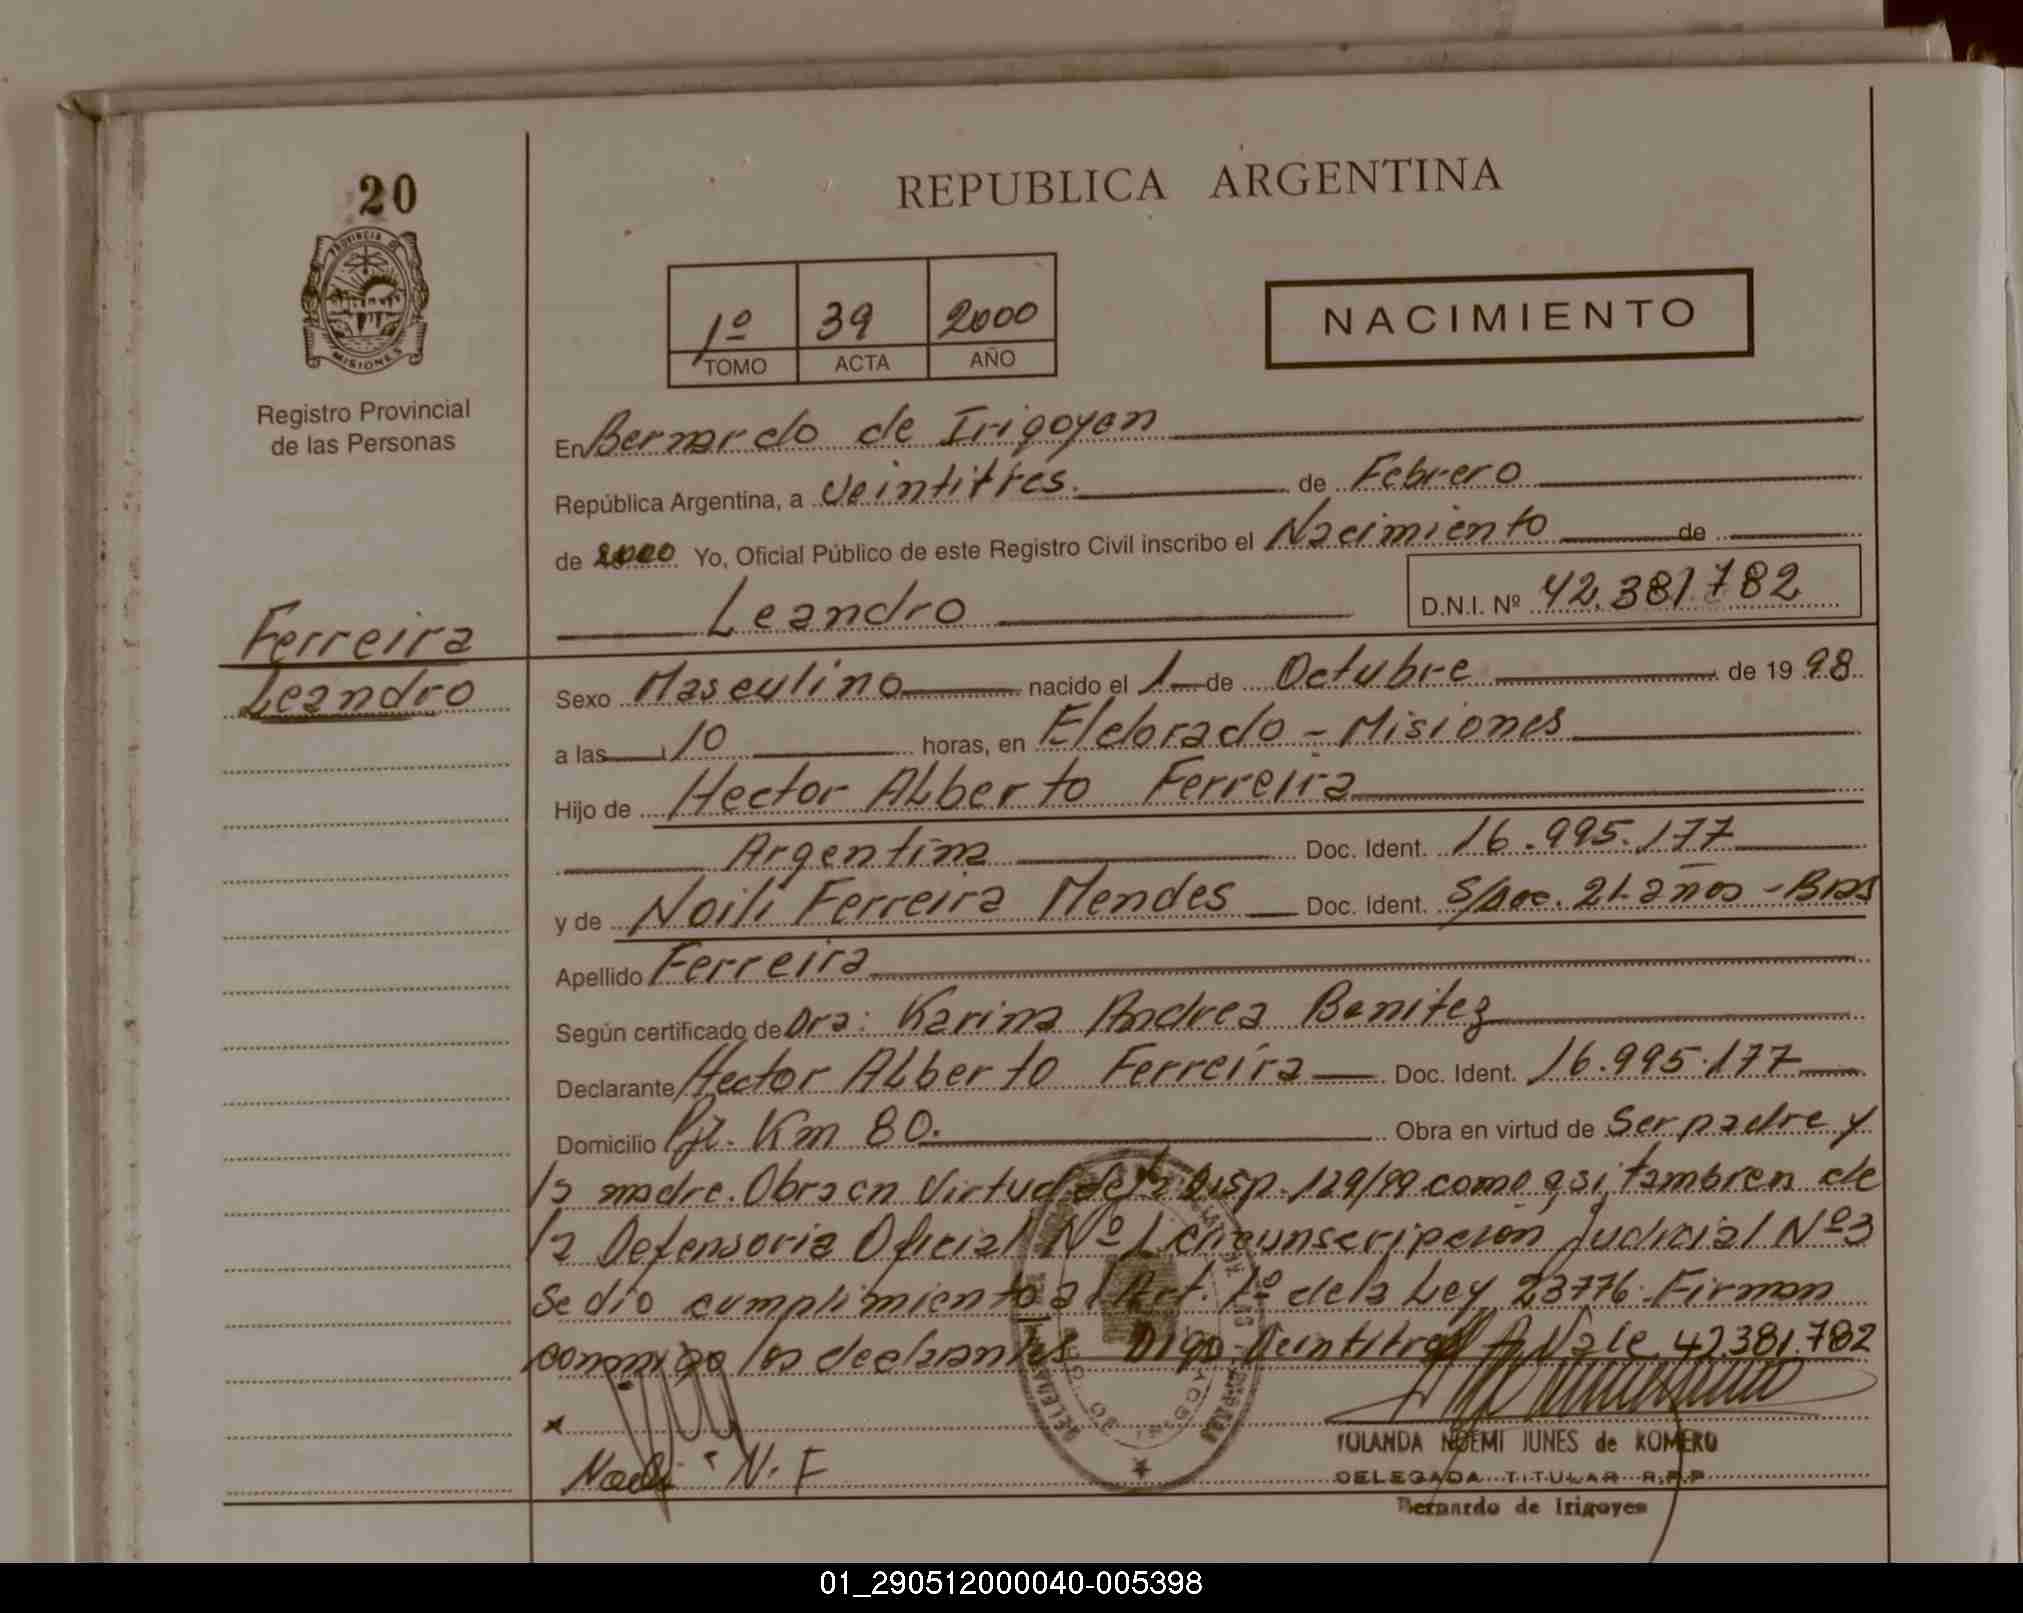 20
REPUBLICA ARGENTINA
PROVINCIA DE
MISIONES
Registro Provincial
de las Personas
1º 39 2000
TOMO ACTA AÑO
NACIMIENTO
En Bernardo de Irigoyen
República Argentina, a Veintitres. de Febrero
de 2000 Yo, Oficial Público de este Registro Civil inscribo el Nacimiento de
Leandro D.N.I. Nº 42.381782
Ferreira
Leandro
Sexo Masculino nacido el 1 de Octubre de 19 98
a las 10 horas, en Eldorado - Misiones
Hijo de Hector Alberto Ferreira
Argentina Doc. Ident. 16.995.177
y de Noili Ferreira Mendes Doc. Ident. S/Doc. 21 años - Bras
Apellido Ferreira
Según certificado de Dra: Karina Andrea Benitez
Declarante Hector Alberto Ferreira Doc. Ident. 16.995.177
Domicilio Pje. Km 80. Obra en virtud de Ser padre y
la madre. Obra en Virtud de la Disp. 129/99 como asi tambien de
la Defensoria Oficial Nº 1 circunscripción Judicial Nº 3
Se dio cumplimiento al Art. 1º de la Ley 23776. Firman
conmigo los declarantes Digo Veintitres Vale 42381.782
x
N. F
YOLANDA NOEMI JUNES de ROMERO
DELEGADA TITULAR R.P.P
Bernardo de Irigoyen
01_290512000040-005398